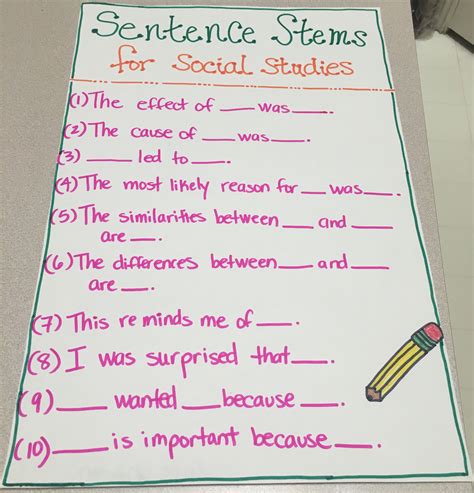 Sentence Stems
for Social Studies
(1) The effect of ___ was ___.
(2) The cause of ___ was ___.
(3) ___ led to ___.
(4) The most likely reason for ___ was ___.
(5) The similarities between ___ and ___
are ___.
(6) The differences between ___ and ___
are ___.
(7) This reminds me of ___.
(8) I was surprised that ___.
(9) ___ wanted ___ because ___.
(10) ___ is important because ___.